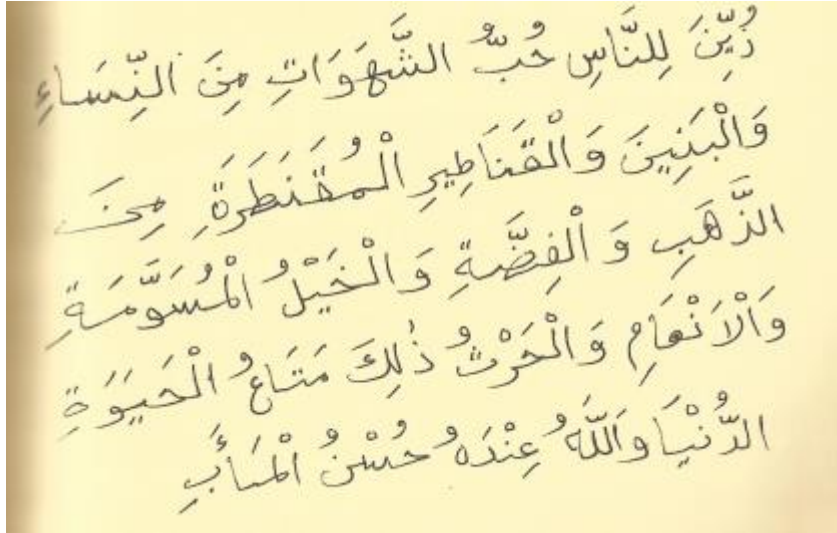 زُيِّنَ لِلنَّاسِ حُبُّ الشَّهَوَاتِ مِنَ النِّسَاءِ
وَالْبَنِينَ وَالْقَنَاطِيرِ الْمُقَنطَرَةِ مِنَ
الذَّهَبِ وَالْفِضَّةِ وَالْخَيْلُ الْمُسَوَّمَةِ
وَالْاَنْعَامِ وَالْحَرْثُ ذٰلِكَ مَتَاعُ الْحَيَوٰةِ
الدُّنْيَا وَاللّٰهُ عِنْدَهُ حُسْنُ الْمَأَبِ